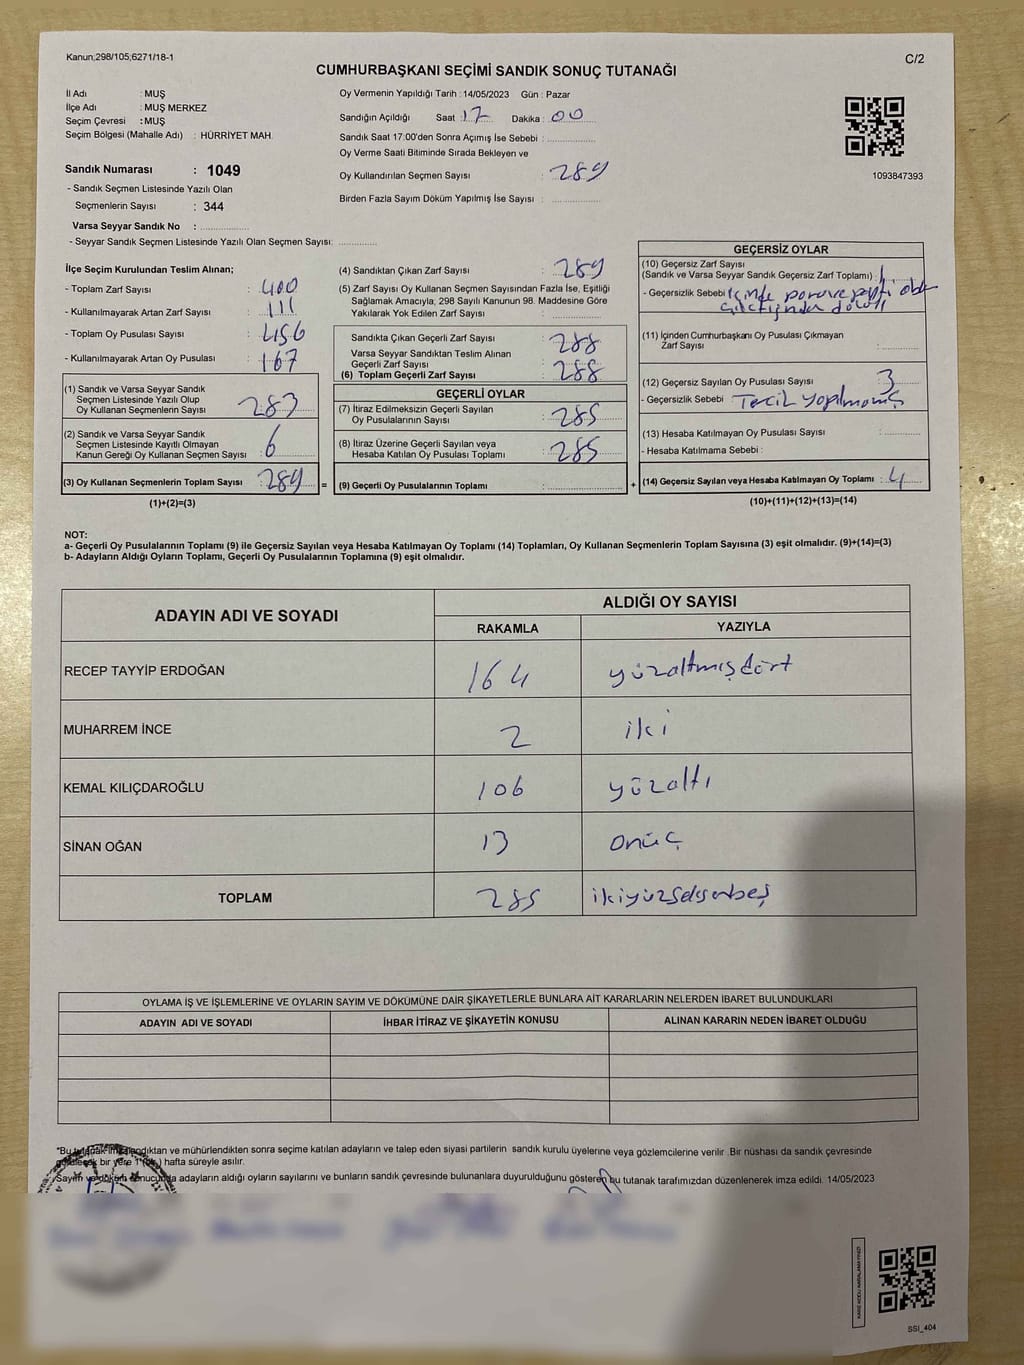 Kanun;298/105;6271/18-1
C/2
CUMHURBAŞKANI SEÇİMİ SANDIK SONUÇ TUTANAĞI
İl Adı : MUŞ
İlçe Adı : MUŞ MERKEZ
Seçim Çevresi : MUŞ
Seçim Bölgesi (Mahalle Adı) : HÜRRİYET MAH.
Sandık Numarası : 1049
- Sandık Seçmen Listesinde Yazılı Olan
Seçmenlerin Sayısı : 344
Varsa Seyyar Sandık No :
- Seyyar Sandık Seçmen Listesinde Yazılı Olan Seçmen Sayısı:
Oy Vermenin Yapıldığı Tarih : 14/05/2023 Gün : Pazar
Sandığın Açıldığı Saat : 17 Dakika : 00
Sandık Saat 17:00'den Sonra Açımış İse Sebebi :
Oy Verme Saati Bitiminde Sırada Bekleyen ve
Oy Kullandırılan Seçmen Sayısı : 289
Birden Fazla Sayım Döküm Yapılmış İse Sayısı :
1093847393
İlçe Seçim Kurulundan Teslim Alınan;
- Toplam Zarf Sayısı : 400
- Kullanılmayarak Artan Zarf Sayısı : 111
- Toplam Oy Pusulası Sayısı : 456
- Kullanılmayarak Artan Oy Pusulası : 167
(1) Sandık ve Varsa Seyyar Sandık
Seçmen Listesinde Yazılı Olup
Oy Kullanan Seçmenlerin Sayısı : 283
(2) Sandık ve Varsa Seyyar Sandık
Seçmen Listesinde Kayıtlı Olmayan
Kanun Gereği Oy Kullanan Seçmen Sayısı : 6
(3) Oy Kullanan Seçmenlerin Toplam Sayısı : 289 =
(1)+(2)=(3)
(4) Sandıktan Çıkan Zarf Sayısı : 289
(5) Zarf Sayısı Oy Kullanan Seçmen Sayısından Fazla İse, Eşitliği
Sağlamak Amacıyla, 298 Sayılı Kanunun 98. Maddesine Göre
Yakılarak Yok Edilen Zarf Sayısı :
Sandıkta Çıkan Geçerli Zarf Sayısı : 288
Varsa Seyyar Sandıktan Teslim Alınan
Geçerli Zarf Sayısı :
(6) Toplam Geçerli Zarf Sayısı : 288
GEÇERLİ OYLAR
(7) İtiraz Edilmeksizin Geçerli Sayılan
Oy Pusulalarının Sayısı : 285
(8) İtiraz Üzerine Geçerli Sayılan veya
Hesaba Katılan Oy Pusulası Toplamı : 285
(9) Geçerli Oy Pusulalarının Toplamı : +
GEÇERSİZ OYLAR
(10) Geçersiz Zarf Sayısı
(Sandık ve Varsa Seyyar Sandık Geçersiz Zarf Toplamı) : 1
- Geçersizlik Sebebi : içinde
(11) İçinden Cumhurbaşkanı Oy Pusulası Çıkmayan
Zarf Sayısı :
(12) Geçersiz Sayılan Oy Pusulası Sayısı : 3
- Geçersizlik Sebebi : Tercih yapılmamış
(13) Hesaba Katılmayan Oy Pusulası Sayısı :
- Hesaba Katılmama Sebebi :
(14) Geçersiz Sayılan veya Hesaba Katılmayan Oy Toplamı : 4
(10)+(11)+(12)+(13)=(14)
NOT:
a- Geçerli Oy Pusulalarının Toplamı (9) ile Geçersiz Sayılan veya Hesaba Katılmayan Oy Toplamı (14) Toplamları, Oy Kullanan Seçmenlerin Toplam Sayısına (3) eşit olmalıdır. (9)+(14)=(3)
b- Adayların Aldığı Oyların Toplamı, Geçerli Oy Pusulalarının Toplamına (9) eşit olmalıdır.
ADAYIN ADI VE SOYADI ALDIĞI OY SAYISI
RAKAMLA YAZIYLA
RECEP TAYYİP ERDOĞAN 164 yüzaltmışdört
MUHARREM İNCE 2 iki
KEMAL KILIÇDAROĞLU 106 yüzaltı
SİNAN OĞAN 13 onüç
TOPLAM 285 ikiyüzseksenbeş
OYLAMA İŞ VE İŞLEMLERİNE VE OYLARIN SAYIM VE DÖKÜMÜNE DAİR ŞİKAYETLERLE BUNLARA AİT KARARLARIN NELERDEN İBARET BULUNDUKLARI
ADAYIN ADI VE SOYADI İHBAR İTİRAZ VE ŞİKAYETİN KONUSU ALINAN KARARIN NEDEN İBARET OLDUĞU
*Bu tutanak imzalandıktan ve mühürlendikten sonra seçime katılan adayların ve talep eden siyasi partilerin sandık kurulu üyelerine veya gözlemcilerine verilir .Bir nüshası da sandık çevresinde
bir yere 1 hafta süreyle asılır.
Sayım ve döküm sonucunda adayların aldığı oyların sayılarını ve bunların sandık çevresinde bulunanlara duyurulduğunu gösteren bu tutanak tarafımızdan düzenlenerek imza edildi. 14/05/2023
SSI_404